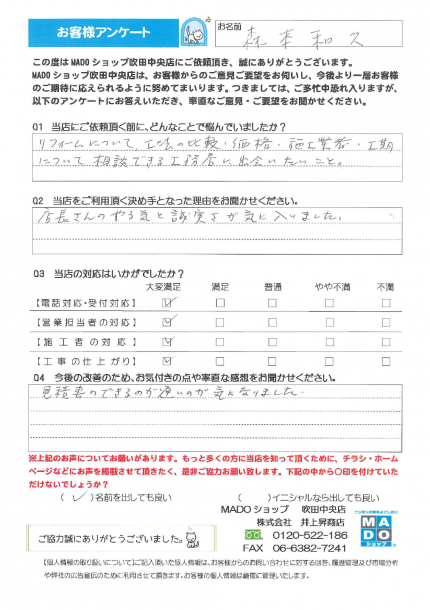 お客様アンケート
お名前
森本和久
この度は MADO ショップ吹田中央店にご依頼頂き、誠にありがとうございます。
MADO ショップ吹田中央店は、お客様からのご意見ご要望をお伺いし、今後より一層お客様
のご期待に応えられるように努めてまいります。つきましては、ご多忙中恐れ入りますが、
以下のアンケートにお答えいただき、率直なご意見・ご要望をお聞かせください。
Q1 当店にご依頼頂く前に、どんなことで悩んでいましたか？
リフォームについて、工法の比較・価格・施工業者・工期
について相談できる工務店に出会いたいこと。
Q2 当店をご利用頂く決め手となった理由をお聞かせください。
店長さんのやる気と誠実さが気に入りました。
Q3 当店の対応はいかがでしたか？
大変満足 満足 普通 やや不満 不満
【電話対応・受付対応】
【営業担当者の対応】
【施工者の対応】
【工事の仕上がり】
Q4 今後の改善のため、お気付きの点や率直な感想をお聞かせください。
見積書のできるのが遅いのが気になりました。
※上記のお声についてお願いがあります。もっと多くの方に当店を知って頂くために、チラシ・ホーム
ページなどにお声を掲載させて頂きたく、是非ご協力お願い致します。下記の中から〇印を付けていた
だけないでしょうか？
(✓)名前を出しても良い ( )イニシャルなら出しても良い
MADO ショップ 吹田中央店
株式会社 井上昇商店
0120-522-186
FAX 06-6382-7241
MADO
ショップ
ご協力誠にありがとうございました。
【個人情報の取り扱いについて】ご記入頂いた個人情報は、お客様からのお問い合わせに対する回答、履歴管理及び市場分析
や弊社の広告宣伝のために利用させて頂きます。お客様の個人情報は厳重に管理いたします。